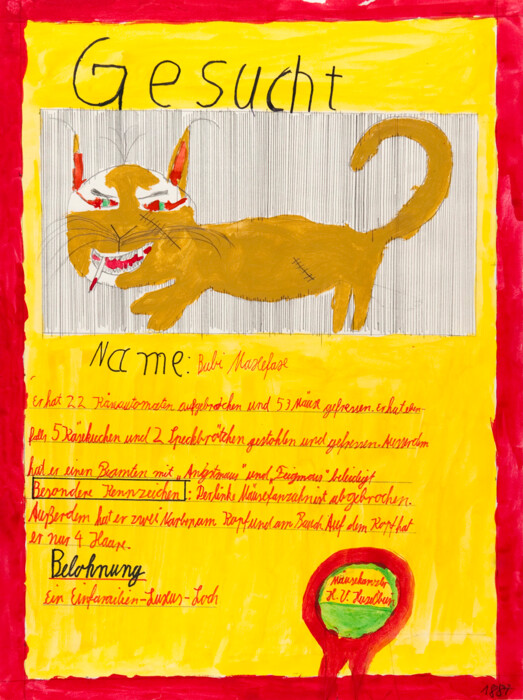 Gesucht
Name: Bubi Maxefase
Er hat 22 Käseautomaten aufgebrochen und 53 Mäuse gefressen. er hat eben-
falls 5 Käsekuchen und 2 Speckbrötchen gestohlen und gefressen. Ausserdem
hat er einen Beamten mit „Angstmaus" und „Feigmaus" beleidigt
Besondere Kennzeichen: Der linke Mäusefanzahn ist abgebrochen.
Außerdem hat er zwei Narben am Kopf und am Bauch Auf dem Kopf hat
er nur 4 Haare.
Belohnung
Ein Einfamilien-Luxus-Loch
Mäusekanzler
H. V.
1984